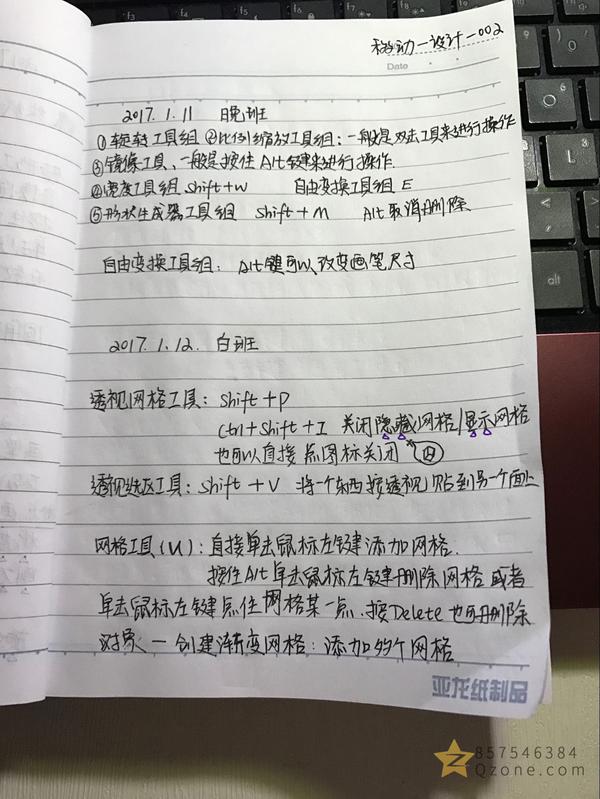 移动一设计一002
Date
2017.1.11 晚班
①旋转工具组 ②比例缩放工具组：一般是双击工具来进行操作
③镜像工具、一般是按住Alt键来进行操作.
④宽度工具组 shift+w 自由变换工具组 E
⑤形状生成器工具组 shift+M Alt取消删除
自由变换工具组：Alt键可以改变画笔尺寸
2017.1.12. 白班
透视网格工具：shift+p
ctrl+shift+I 关闭隐藏网格/显示网格
也可以直接点图标关闭
透视选区工具：shift+V 将一个东西按透视贴到另一个面上
网格工具(U)：直接单击鼠标左键添加网格.
按住Alt单击鼠标左键删除网格或者
单击鼠标左键点住网格某一点.按Delete也可删除
对象一创建渐变网格：添加多个网格
亚龙纸制品
857546384
Qzone.com
alt